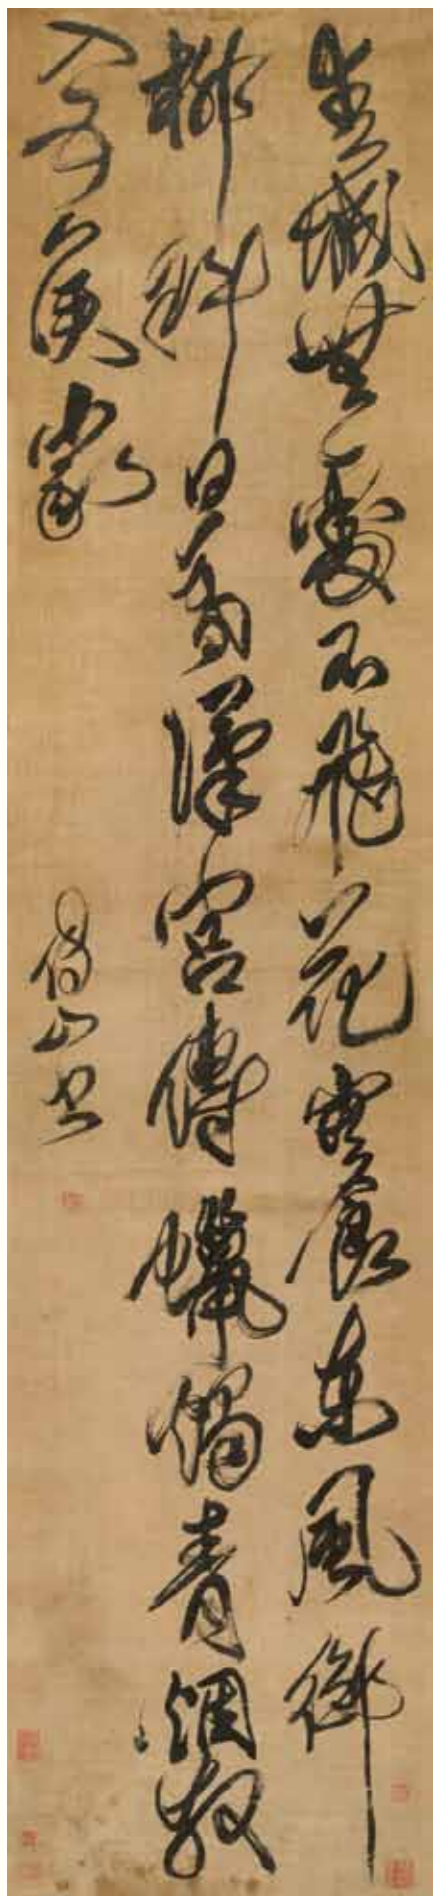 春城無處不飛花寒食東風御
柳斜日暮漢宮傳蠟燭青烟散
入五侯家
傅山書